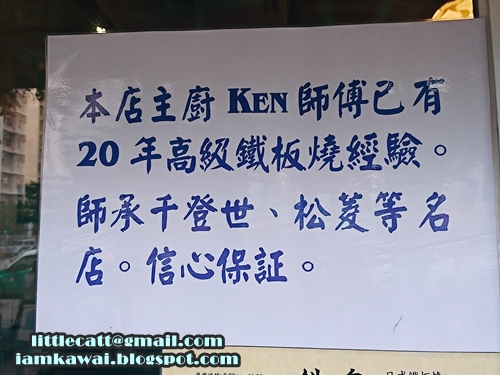 本店主廚 KEN 師傅已有
20 年高級鐵板燒經驗。
師承千登世、松菱等名
店。信心保証。
littlecatt@gmail.com
iamkawai.blogspot.com